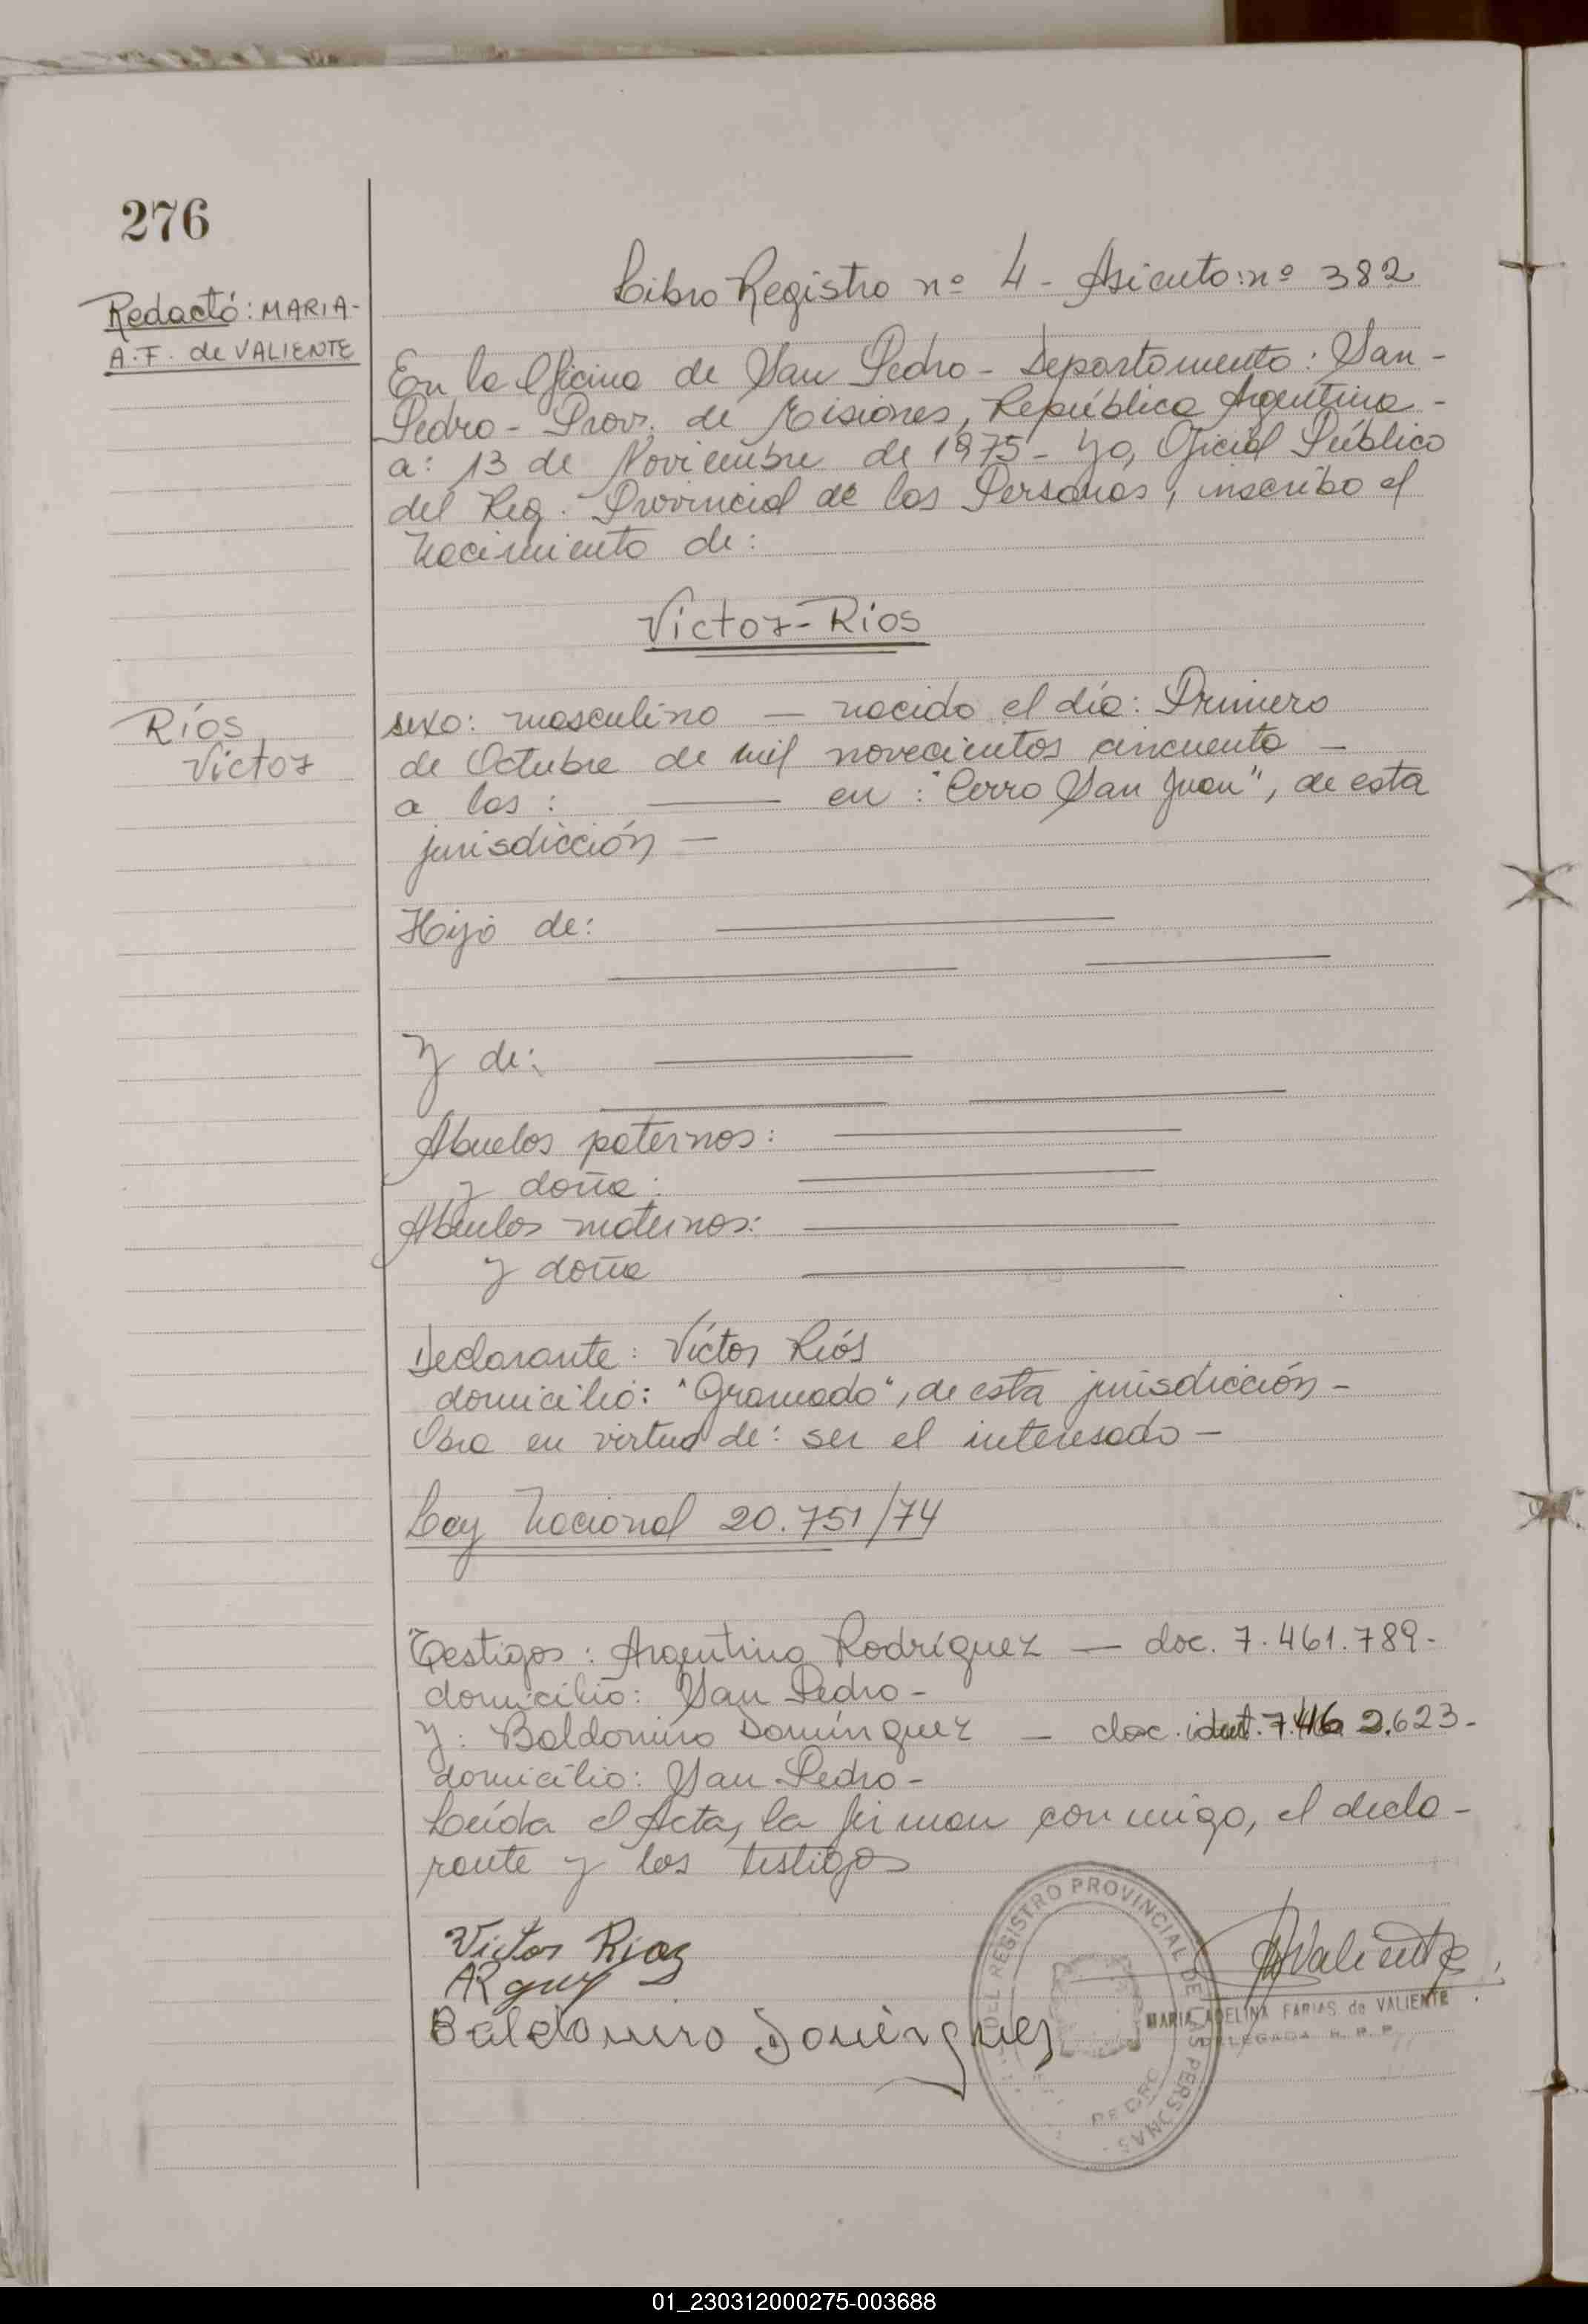 276
Redactó: MARIA-
A. F. de VALIENTE
Libro Registro nº 4 - Asiento: nº 382
En la Oficina de San Pedro - Departamento: San -
Pedro - Prov. de Misiones, República Argentina -
a: 13 de Noviembre de 1975 - Yo, Oficial Público
del Reg. Provincial de las Personas, inscribo el
Nacimiento de:
Victor - Ríos
Ríos
Victor
sexo: masculino — nacido el día: Primero
de Octubre de mil novecientos cincuenta —
a las: — en: "Cerro San Juan", de esta
jurisdicción —
Hijo de:
Y de:
Abuelos paternos:
y doña:
Abuelos maternos:
y doña
Declarante: Víctor Ríos
domicilio: "Gramado", de esta jurisdicción -
Obra en virtud de: ser el interesado -
Ley Nacional 20.751/74
Testigos: Argentino Rodríguez — doc. 7.461.789-
domicilio: San Pedro -
Y: Baldomiro Domínguez — doc. ident. 7.462.623-
domicilio: San Pedro -
Leída el Acta, la firman conmigo, el decla-
rante y los testigos
Victor Rios
Baldomiro Dominguez
AValiente
DEL REGISTRO PROVINCIAL DE LAS PERSONAS
PEDRO
MARIA ADELINA FARIAS de VALIENTE
DELEGADA R. P. P.
01_230312000275-003688